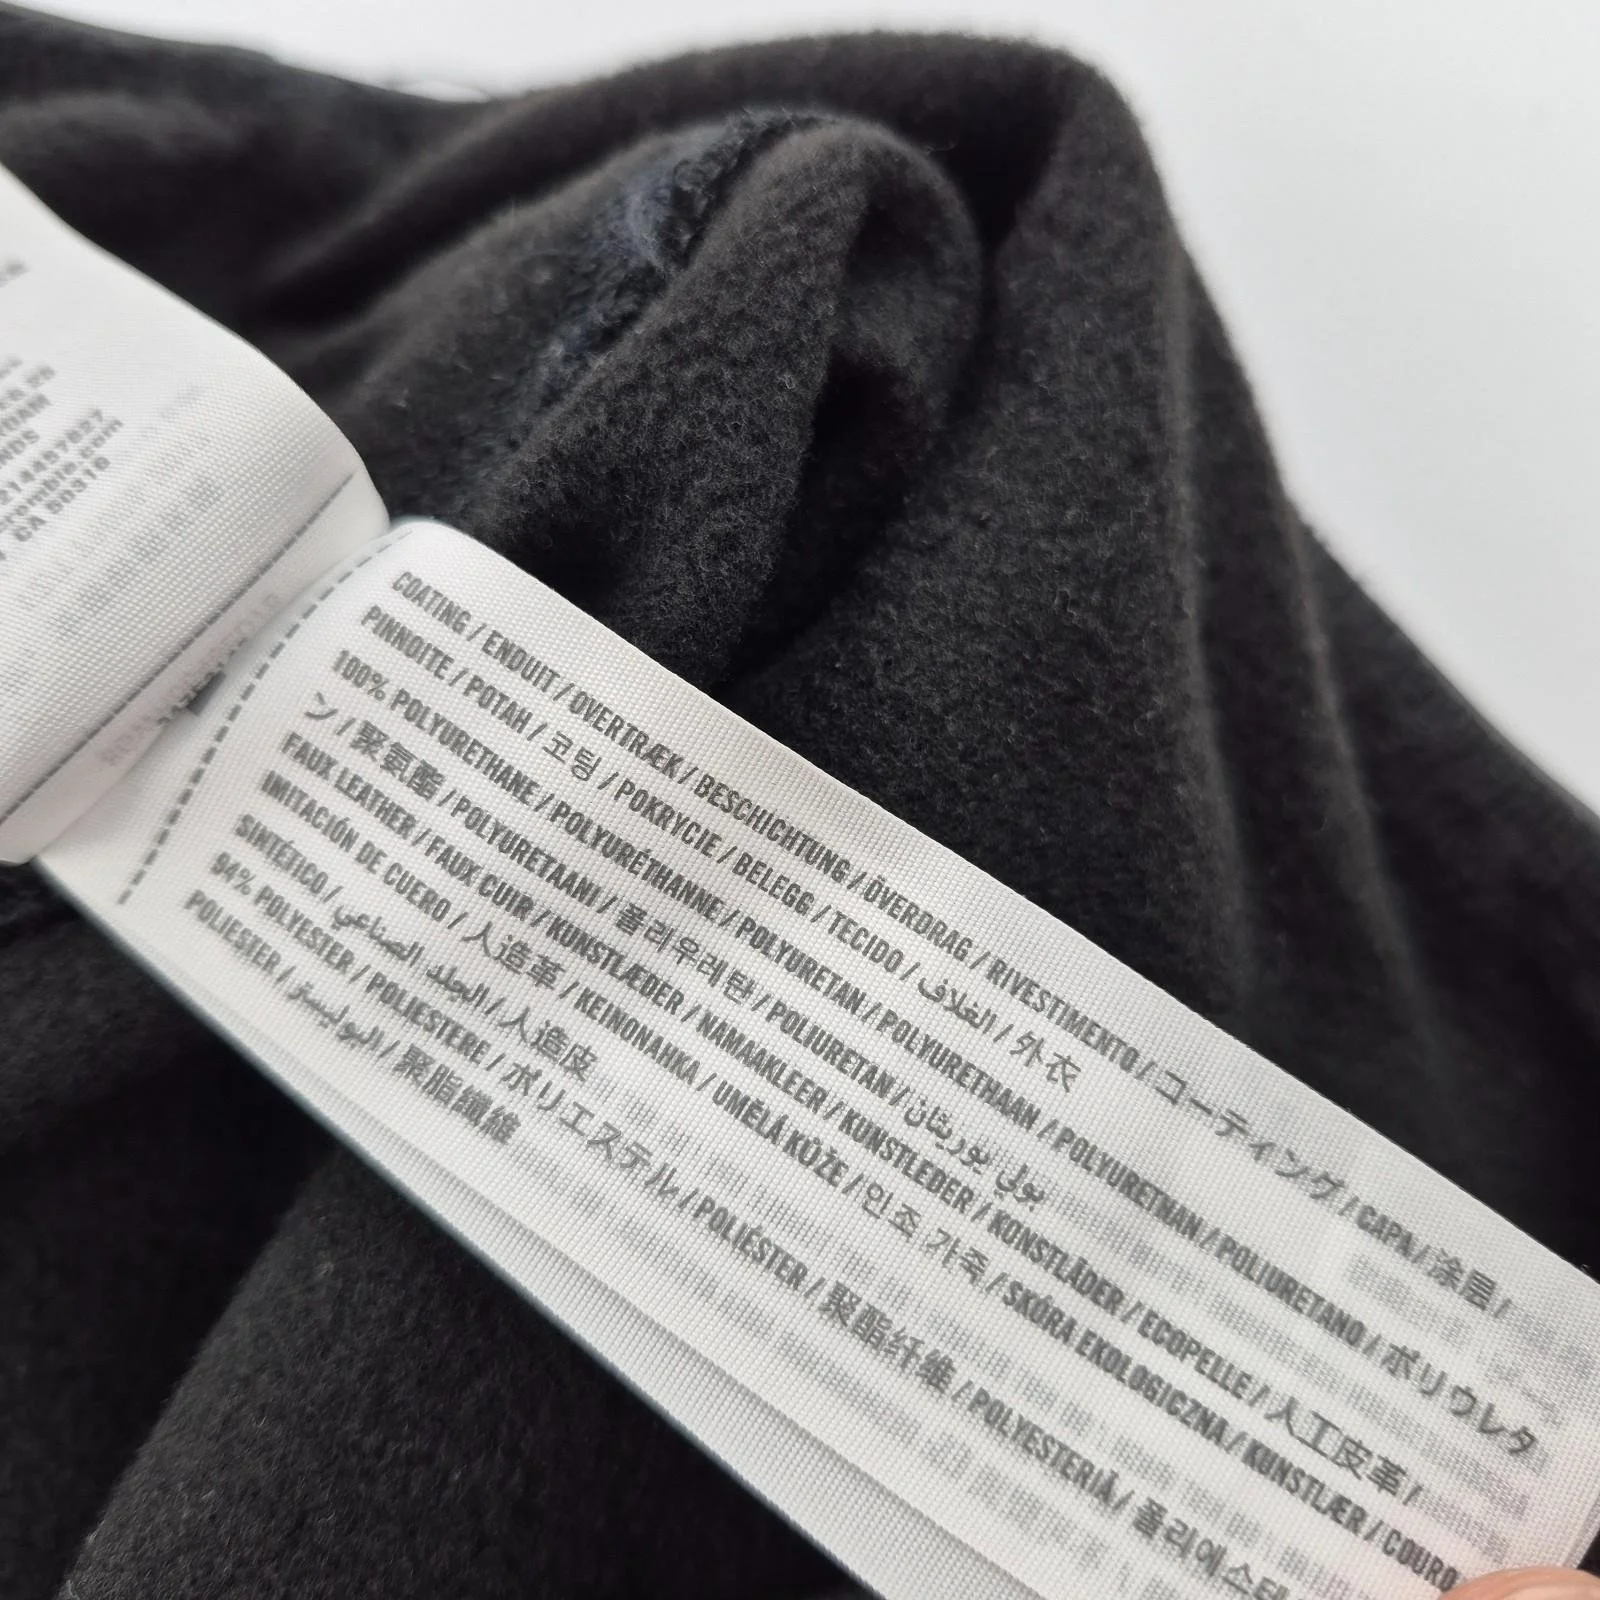 NDS
214457627
CA 90310
COATING / ENDUIT / OVERTRÆK / BESCHICHTUNG / ÖVERDRAG / RIVESTIMENTO / コーティング / CAPA / 涂层 /
PINNOITE / POTAH / 코팅 / POKRYCIE / BELEGG / TECIDO / الغلاف / 外衣
100% POLYURETHANE / POLYURÉTHANNE / POLYURETAN / POLYURETHAAN / POLYURETHAN / POLIURETANO / ポリウレタ
ン / 聚氨酯 / POLYURETAANI / 폴리우레탄 / POLIURETAN / بولي يوريثان
FAUX LEATHER / FAUX CUIR / KUNSTLÆDER / NAMAAKLEER / KUNSTLEDER / KONSTLÄDER / ECOPELLE / 人工皮革 /
IMITACIÓN DE CUERO / 人造革 / KEINONAHKA / UMĚLÁ KŮŽE / 인조 가죽 / SKÓRA EKOLOGICZNA / KUNSTLÆR / COURO
SINTÉTICO / الجلد الصناعي / 人造皮
94% POLYESTER / POLIESTERE / ポリエステル / POLIÉSTER / 聚酯纤维 / POLYESTERIÄ / 폴리에스테
POLIESTER / البوليستر / 聚脂纖維